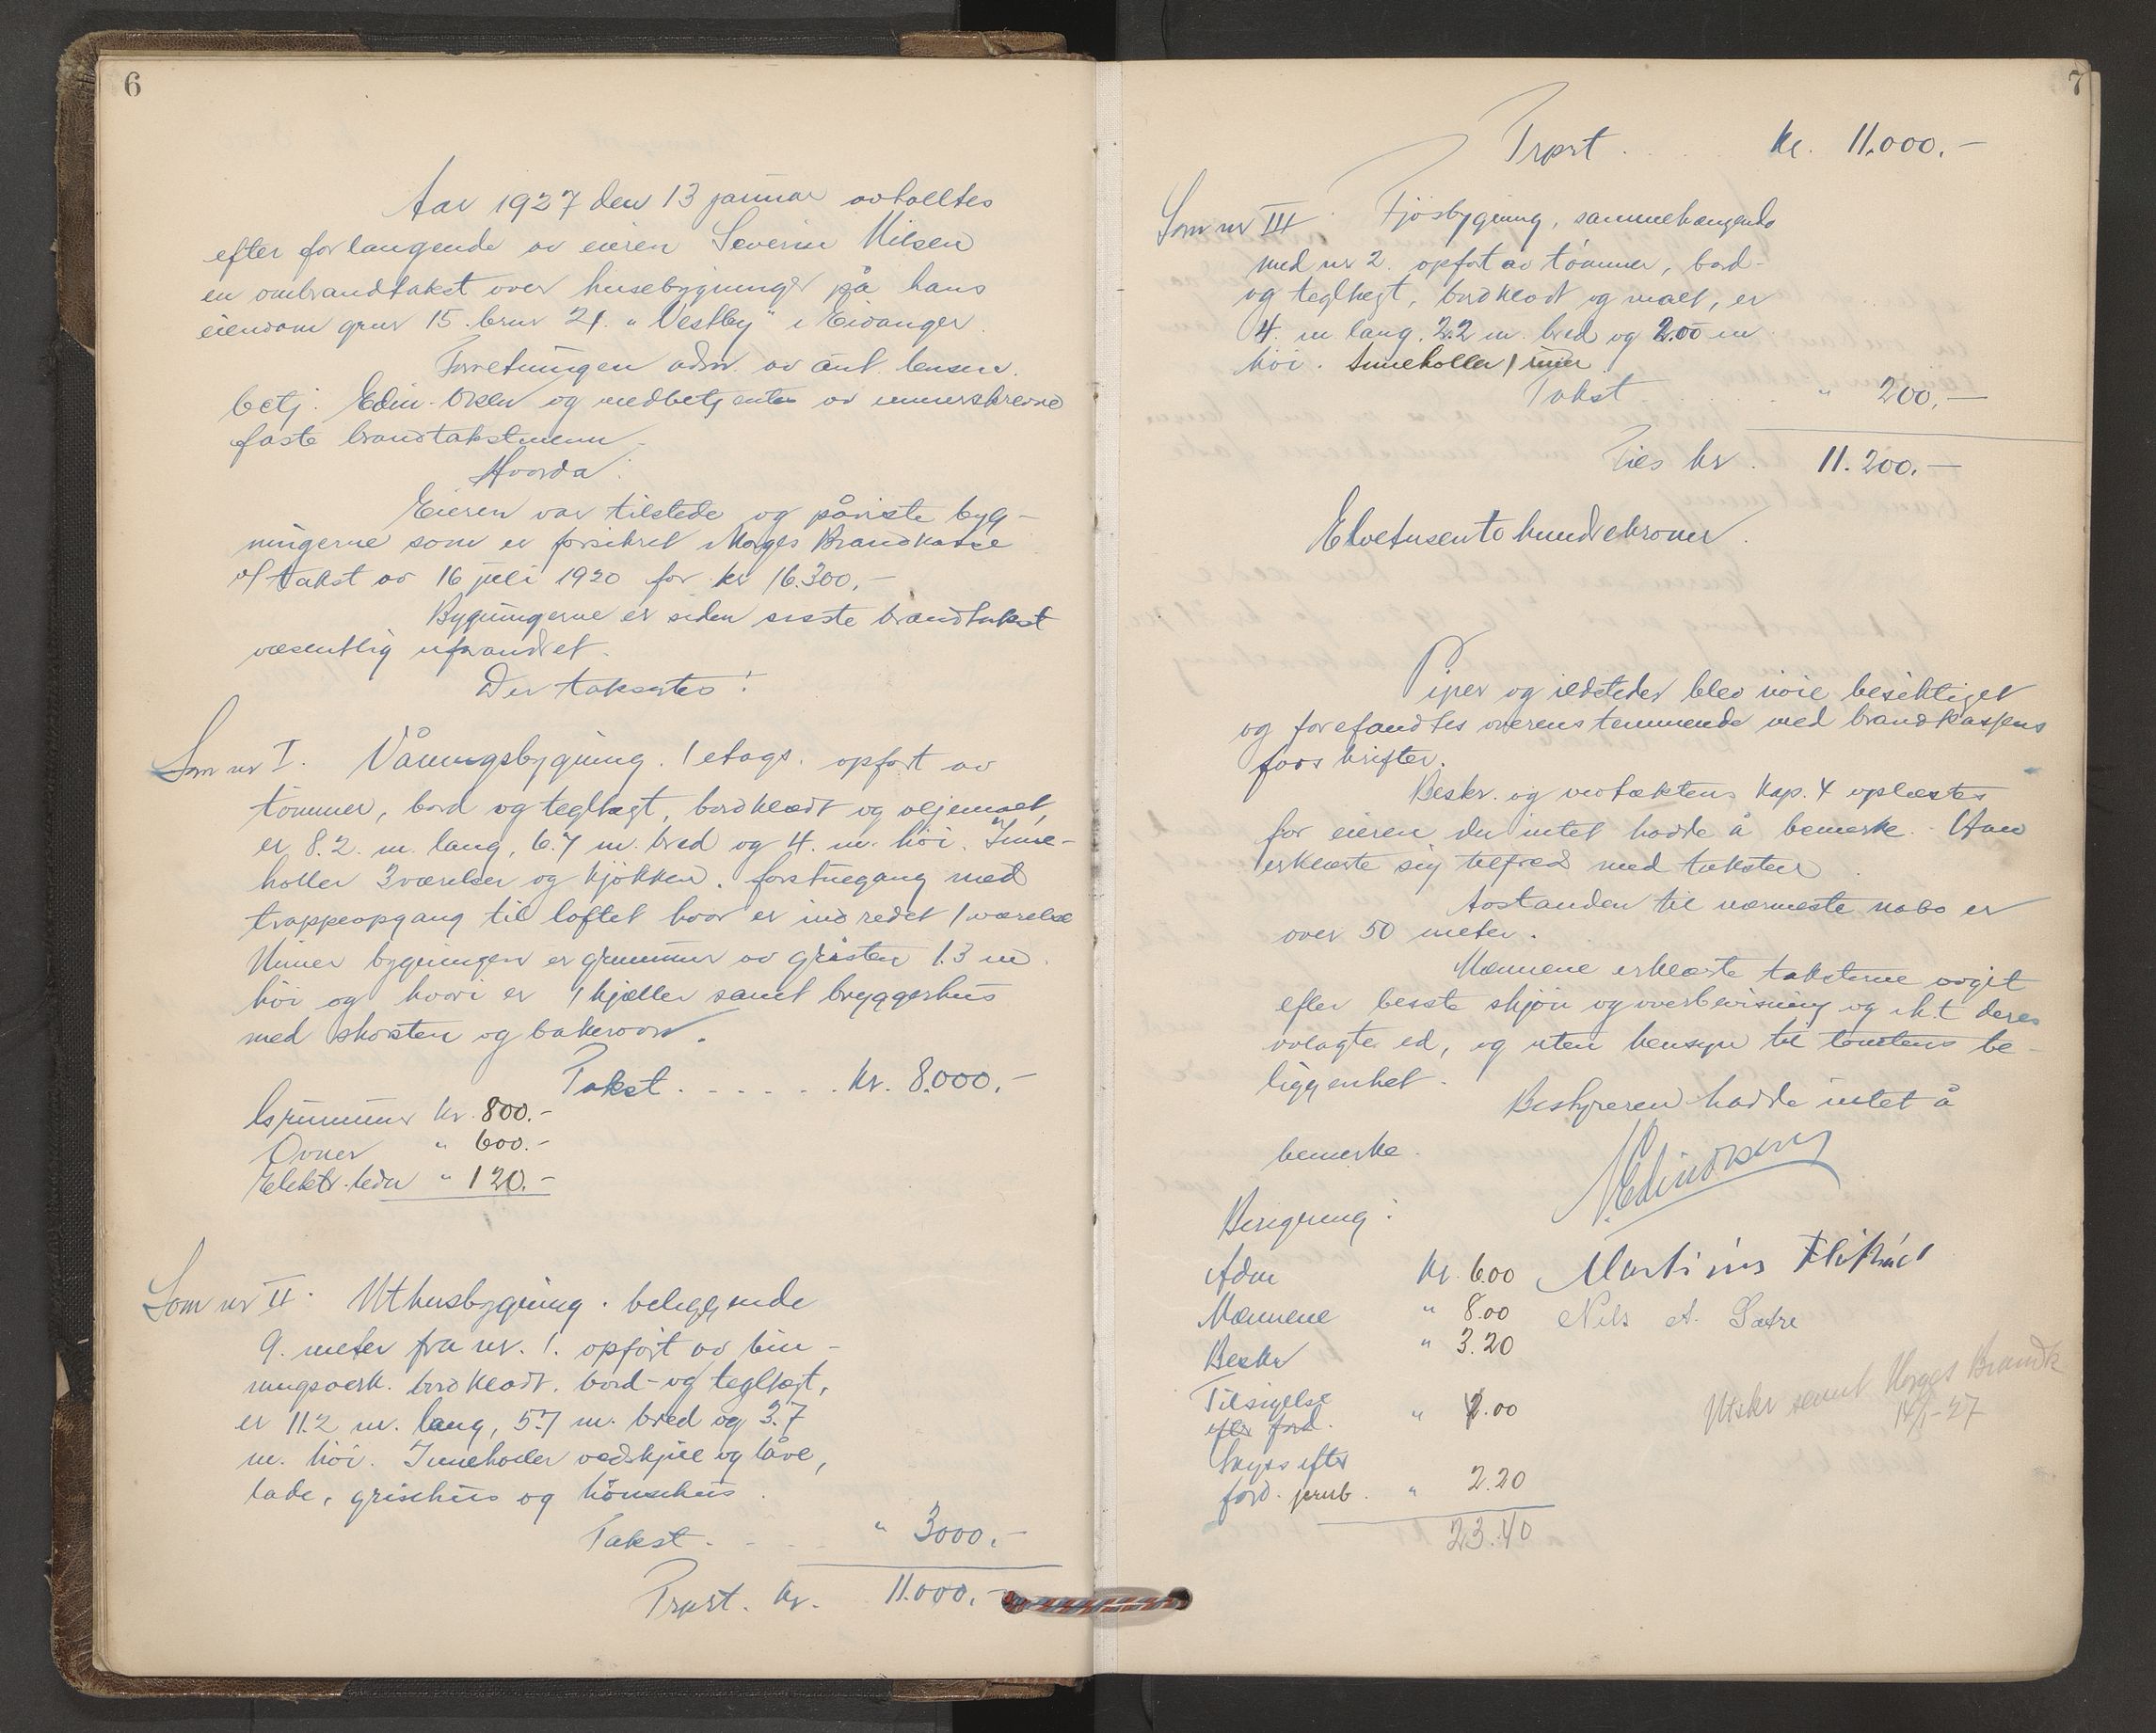 6
Aar 1927 den 13 januar avholltes
efter forlangende av eieren Severin Nilsen
en ombrandtakst over husebygninger på hans
eiendom gnr 15. brnr 21. "Vestby" i Eidanger.
Forretningen adm. av ant. lensm.
betj. Edin Olsen og medbetjentes av unnerskrevne
faste brandtakstmenn.
Hvorda:
Eieren var tilstede og påviste byg-
ningerne som er forsikret i Norges Brandkasse
v/ takst av 16 juli 1920 for kr 16.300,-
Bygningerne er siden sisste brandtakst
væsentlig uforandret.
Der taksertes:
Som nr I. Våningsbygning. 1 etags. opført av
tømmer, bord og teglhægt, bordklædt og oljemalt,
er 8.2. m. lang, 6.7 m. bred og 4. m. höi. Inne-
holler 3 værelser og kjøkken. forstuegang med
trappeopgang til loftet hvor er indredet 1 værelse
Unner bygningen er grunmur av gråsten 1.3 m.
höi og hvori er 1 kjæller samt bryggerhus
med skorsten og bakerovn.
Takst . . . . . . kr. 8.000,-
Grunmur kr. 800.-
Ovner " 600.-
Elektr. ledn " 120.-
Som nr II. Uthusbygning. beliggende
9. meter fra nr. 1. opført av bin-
ningsverk. bordklædt. bord- og teglhægt,
er 11.2 m. lang, 5.7 m. bred og 3.7
m. höi. Inneholler vedskjul og låve,
lade, grisehus og hönsehus.
Takst. - - - " 3000.-
Trpst. kr. 11.000.-
7
Trpst . . . kr. 11.000.-
Som nr III Fjösbygning, sammehængende
med nr 2. opført av tömmer, bord-
og teglhegt, bordklædt og malt, er
4. m lang. 2.2 m. bred og 2.00 m
höi. Inneholler 1 rum
Takst " 200.-
Ties kr. 11.200.-
Elvetusentohundrekroner.
Piper og ildsteder blev nöie besiktiget
og forefandtes overenstemmende med brandkassens
forskrifter.
Beskr. og vedtæktens Kap. 4 oplæstes
for eieren der intet hadde å bemerke. Han
erklærte sig tilfreds med taksten.
Avstanden til nærmeste nabo er
over 50 meter.
Mænnene erklærte taksterne avgit
efter besste skjön og overbevisning og iht deres
avlagte ed, og uten hensyn til tomtens be-
liggenhet.
Bestyreren hadde intet å
bemerke.
Edin Olsen
Beregning:
Adm kr. 6.00 Martinus
Mænnene " 8.00 Nils A. Sætre
Beskr " 3.20
Tilsigelse
efter ford. " 4.00
Skyss efter
ford. " 2.20
23.40
Utskr sendt Norges Brandk
14/1-27